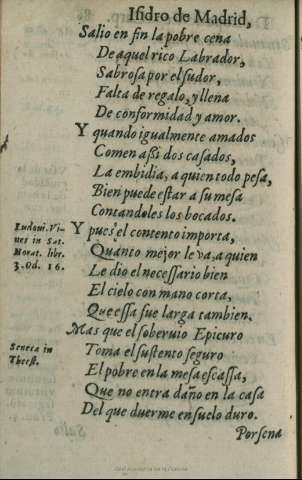 Isidro de Madrid,
Salio en fin la pobre cena
De aquel rico Labrador,
Sabrosa por el sudor,
Falta de regalo, y llena
De conformidad y amor.
Y quando igualmente amados
Comen assi dos casados,
La embidia, a quien todo pesa,
Bien puede estar a su mesa
Contandoles los bocados.
Y pues el contento importa,
Quanto mejor le va, a quien
Le dio el necessario bien
El cielo con mano corta,
Que essa fue larga tambien.
Mas que el soberuio Epicuro
Toma el sustento seguro
El pobre en la mesa escassa,
Que no entra daño en la casa
Del que duerme en suelo duro.
Porsena
Ludoui. Vi-
ues in Sat.
Horat. libr.
3. Od. 16.
Seneca in
Thiest.